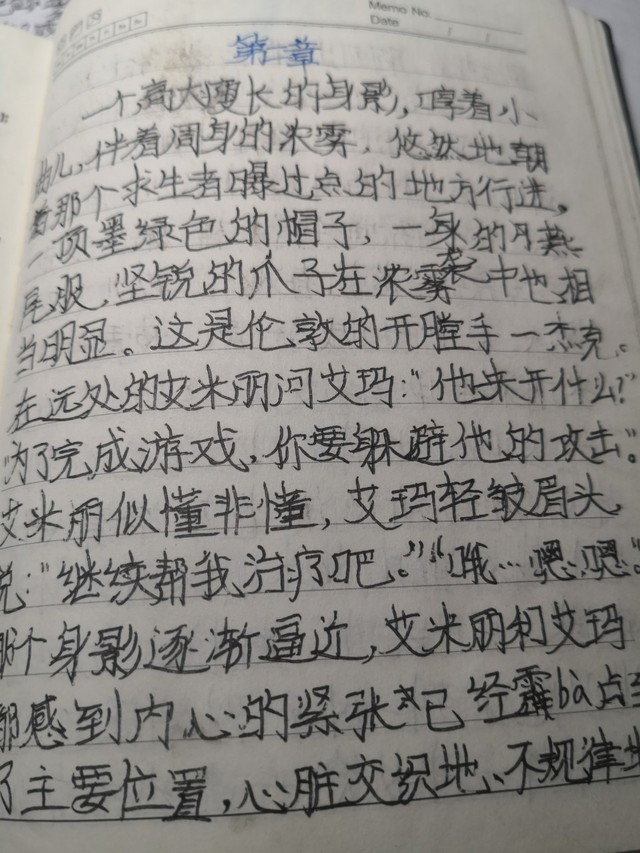 Memo No.
Date
第一章
一个高大瘦长的身影，哼着小
曲儿，伴着周身的浓雾，悠然地朝
着那个求生者曝过点的地方行进，
一顶墨绿色的帽子，一身的月燕
尾服，坚锐的爪子在浓雾之中也相
当明显。这是伦敦的开膛手一杰克。
在远处的艾米丽问艾玛：“他来干什么？”
“为了完成游戏，你要躲避他的攻击。”
艾米丽似懂非懂，艾玛轻皱眉头，
说：“继续帮我治疗吧。”“哦…嗯嗯。”
那个身影逐渐逼近，艾米丽和艾玛
都感到内心的紧张已经霸bà占
了主要位置，心脏交织地、不规律地